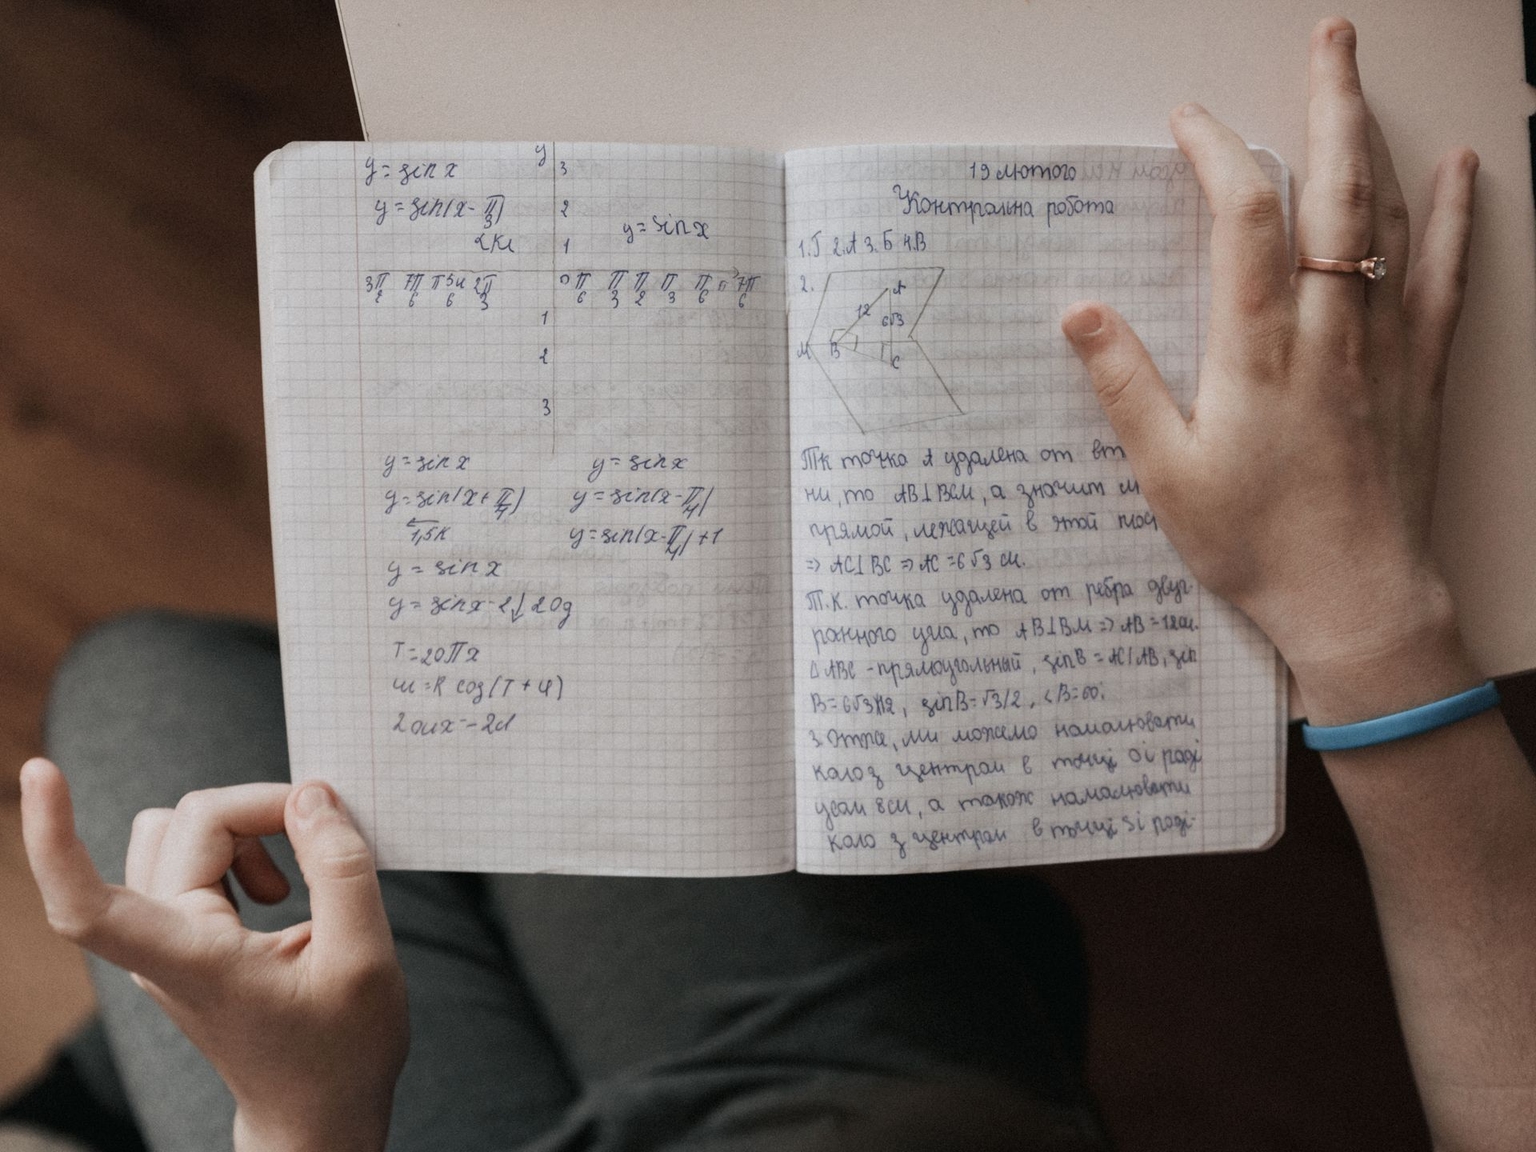 y = sin x
y = sin(x - π/3)
2 кл
y
3
2
1
y = sin x
0
1
2
3
y = sin x
y = sin(x + π/4)
1,5 к
y = sin x
y = sin x - 2 ↓ 2 од
y = sin x
y = sin(x - π/4)
y = sin(x - π/4) + 1
T = 20πx
19 лютого
Контрольна робота
1. Г 2. А 3. Б 4. В
2.
A
12
6√3
M
B
C
Тк точка A удалена от
ни, то AB⊥BCM, а значит
прямой, лежащей в этой
=> AC⊥BC => AC = 6√3 см.
Т.к. точка удалена от ребра двуг-
ранного угла, то AB⊥BM => AB = 12см.
Δ ABC - прямоугольный, sin B = AC/AB, sin
B = 6√3/12, sin B = √3/2, <B = 60;
3. Отже, ми можемо намалювати
коло з центром в точці O і раді
усом 8см, а також намалювати
коло з центром в точці S і раді-